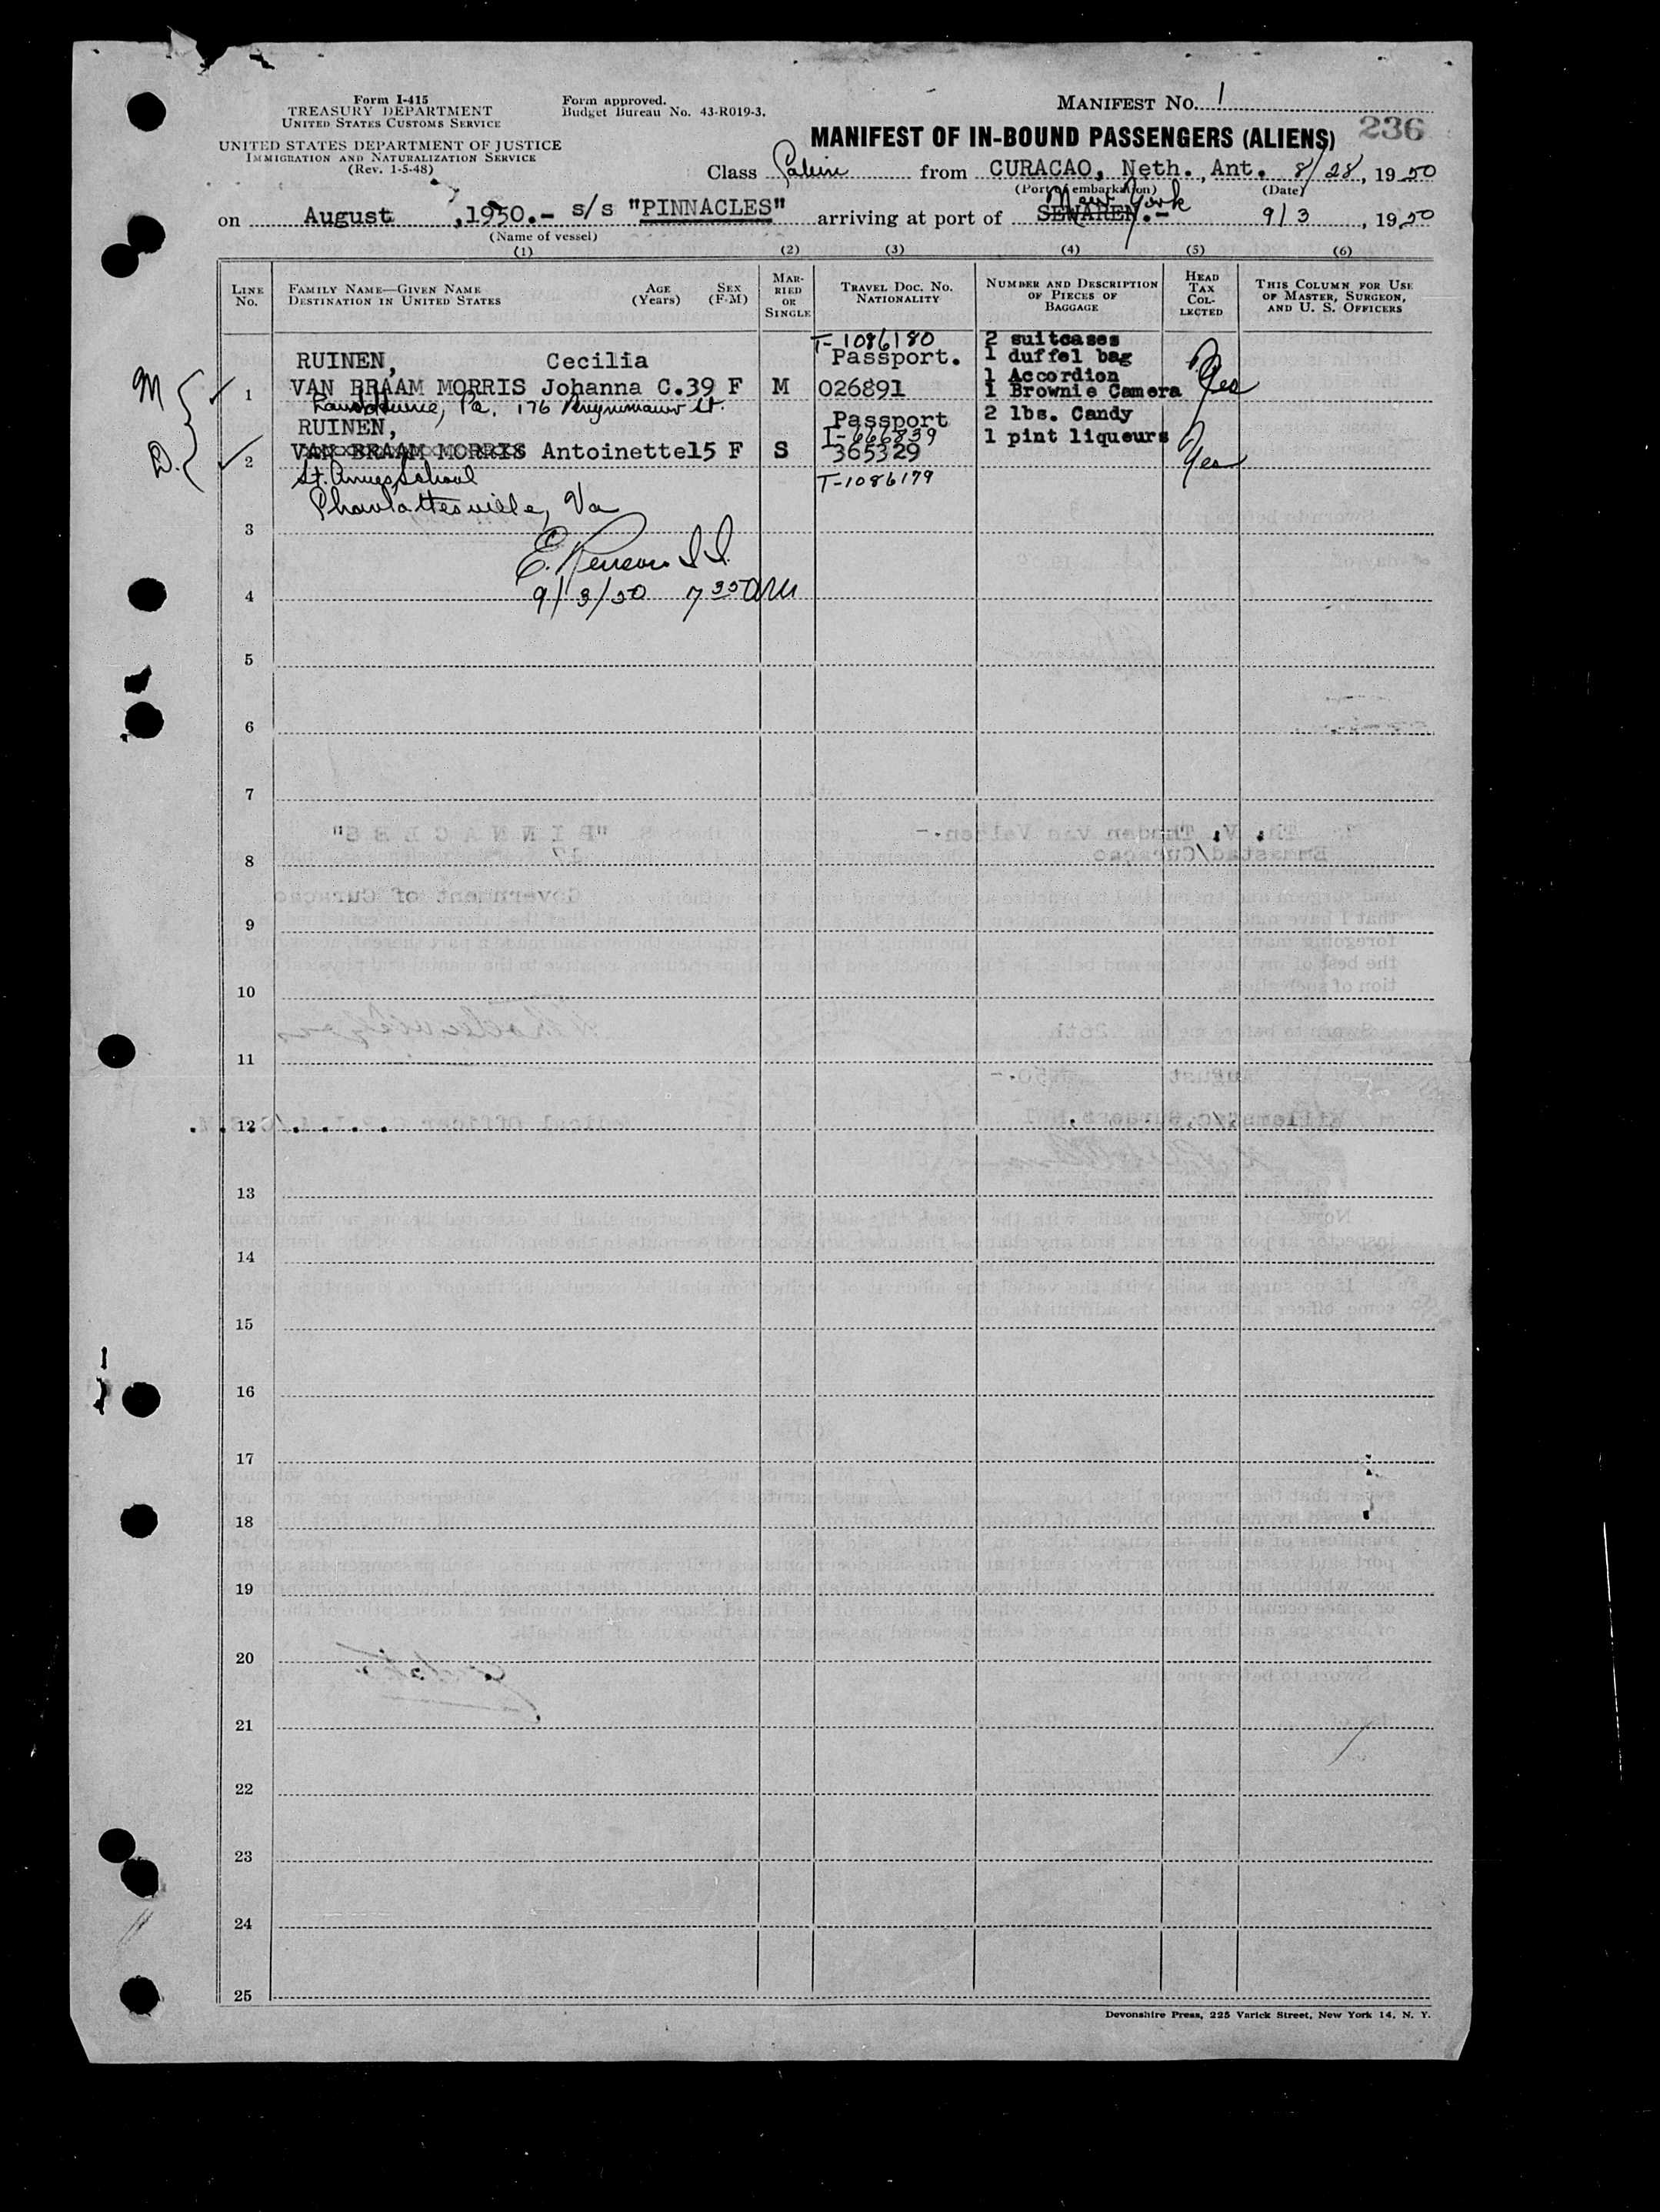 Form I-415
TREASURY DEPARTMENT
UNITED STATES CUSTOMS SERVICE
UNITED STATES DEPARTMENT OF JUSTICE
IMMIGRATION AND NATURALIZATION SERVICE
(Rev. 1-5-48)
Form approved.
Budget Bureau No. 43-R019-3.
MANIFEST NO. 1
MANIFEST OF IN-BOUND PASSENGERS (ALIENS) 236
Class Cabin from CURACAO, Neth. Ant. 8/28, 1950
(Port of embarkation) (Date)
New York
on August, 1950.- s/s "PINNACLES" arriving at port of SEWAREN.- 9/3, 1950
(Name of vessel)
(1) (2) (3) (4) (5) (6)
LINE NO.
FAMILY NAME—GIVEN NAME
DESTINATION IN UNITED STATES
AGE (Years)
SEX (F-M)
MARRIED OR SINGLE
TRAVEL DOC. NO.
NATIONALITY
NUMBER AND DESCRIPTION OF PIECES OF BAGGAGE
HEAD TAX COLLECTED
THIS COLUMN FOR USE OF MASTER, SURGEON, AND U. S. OFFICERS
T-1086180 2 suitcases
RUINEN, Cecilia Passport. 1 duffel bag
M 1 Accordion
1 VAN BRAAM MORRIS Johanna C. 39 F M 026891 1 Brownie Camera Yes
Lansdowne, Pa. 176
RUINEN, Passport 2 lbs. Candy
D. I-666839 1 pint liqueurs
2 VAN BRAAM MORRIS Antoinette 15 F S 365329 Yes
St. Annes School T-1086179
Charlottesville, Va
3
9/3/50 7 35 AM
4
5
6
7
8
9
10
11
12
13
14
15
16
17
18
19
20
21
22
23
24
25
Devonshire Press, 225 Varick Street, New York 14, N. Y.